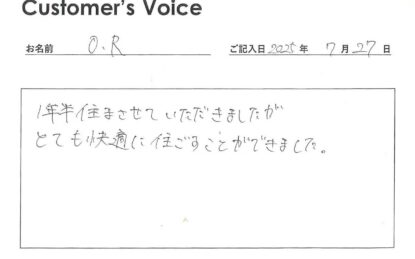 Customer's Voice
お名前 O.R ご記入日 2025 年 7 月 27 日
1年半住まさせていただきましたが
とても快適に住ごすことができました。